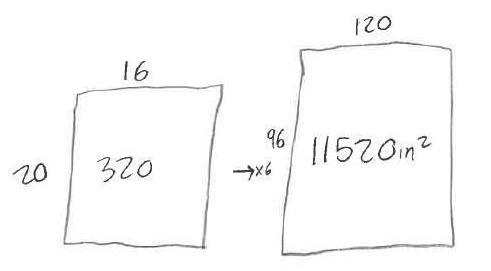 16
20
320
→x6
120
96
11520in²